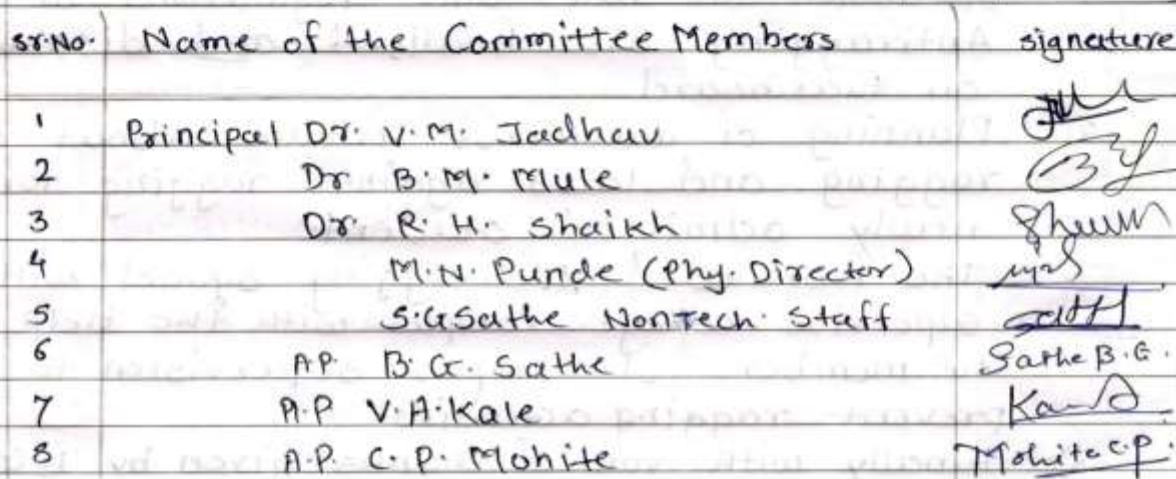 Sr.No. Name of the Committee Members signature
1 Principal Dr. V. M. Jadhav
2 Dr. B. M. Mule
3 Dr. R. H. Shaikh
4 M. N. Punde (Phy. Director)
5 S.G Sathe NonTech. Staff
6 A.P. B. G. Sathe Sathe B.G.
7 A.P V.A. Kale
8 A.P. C. P. Mohite Mohite C.P.